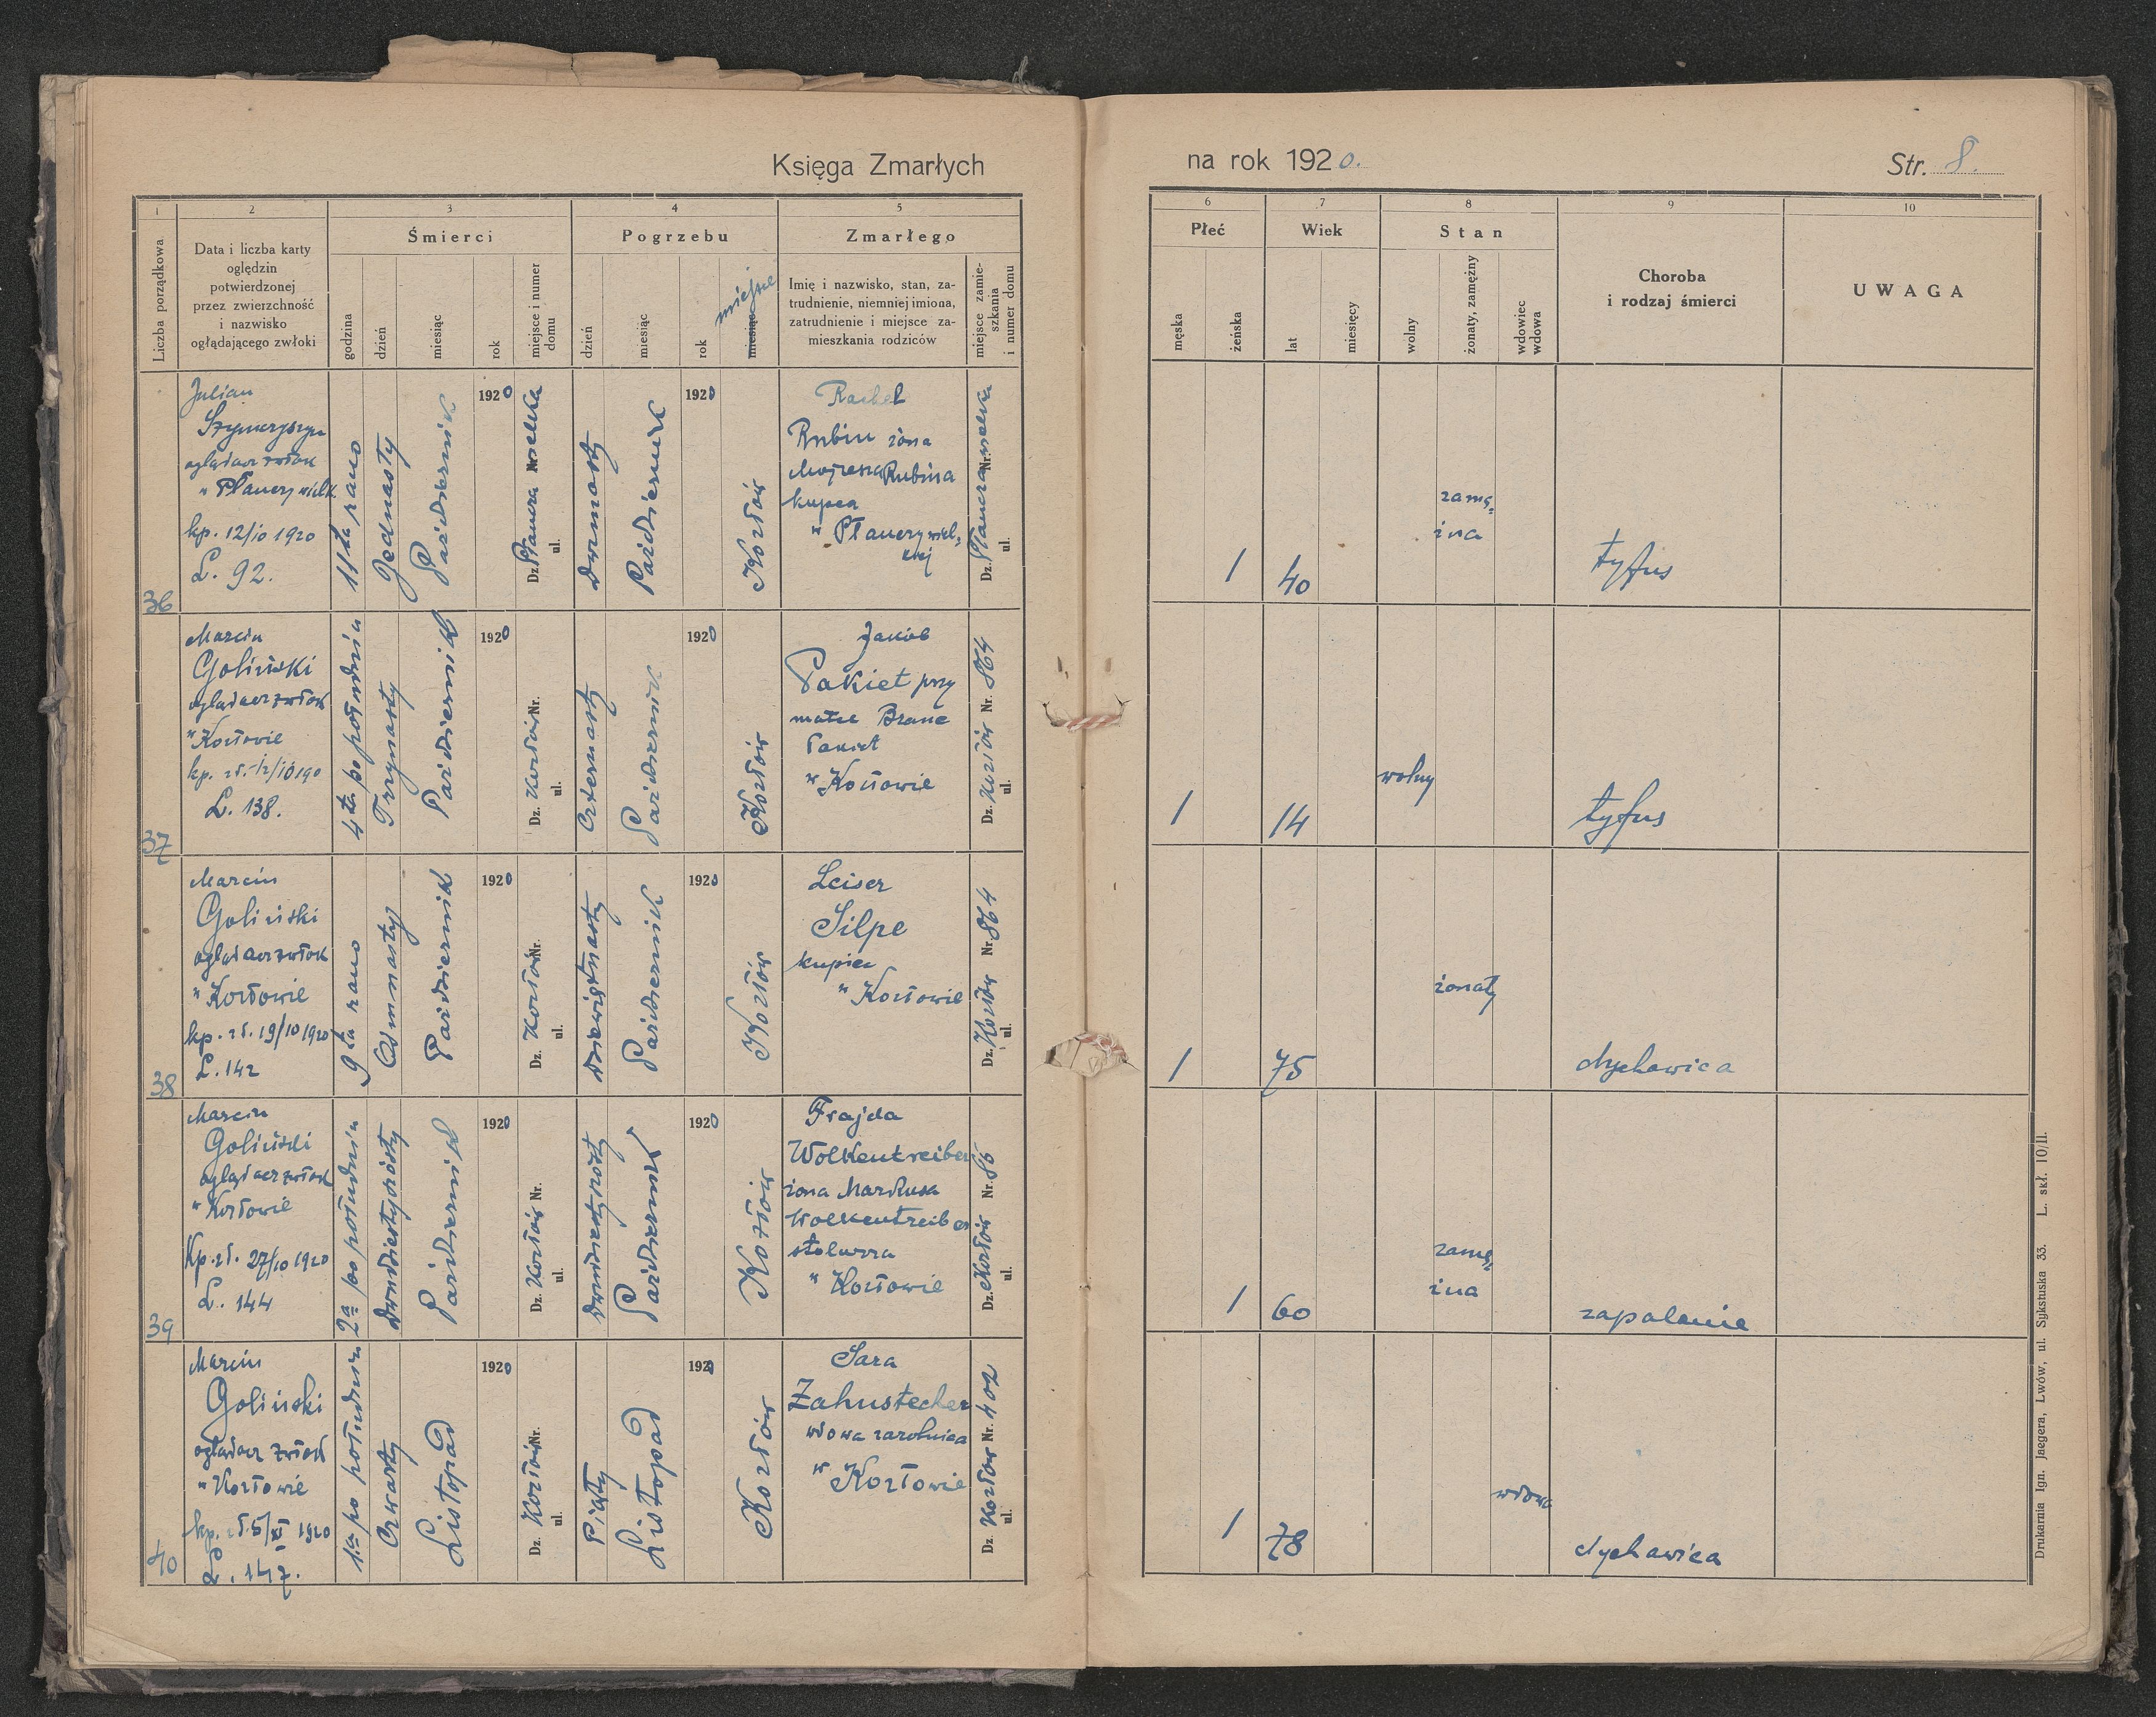 Księga Zmarłych
na rok 1920.
Str. 8.
1
2
3
4
5
6
7
8
9
10
Liczba porządkowa
Data i liczba karty
oględzin
potwierdzonej
przez zwierzchność
i nazwisko
oglądającego zwłoki
Śmierci
godzina
dzień
miesiąc
rok
miejsce i numer
domu
Pogrzebu
dzień
miesiąc
rok
miesiąc
miejsce
Zmarłego
Imię i nazwisko, stan, za-
trudnienie, niemniej imiona,
zatrudnienie i miejsce za-
mieszkania rodziców
miejsce zamie-
szkania
i numer domu
Płeć
męska
żeńska
Wiek
lat
miesięcy
Stan
wolny
żonaty, zamężny
wdowiec
wdowa
Choroba
i rodzaj śmierci
UWAGA
36
Julian
oglądacz zwłok
kp. 12/10 1920
L. 92.
11ta rano
Jednasty
Październik
1920
Dz.
ul.
Październik
1920
Kozłów
Rachel
Rubin żona
Mojżesza Rubina
kupca
Dz.
Nr.
ul.
1
40
zamę-
żna
tyfus
37
Marcin
Goliński
oglądacz zwłok
w Kozłowie
L. 138.
4ta po południu
Trzynasty
Październik
1920
Dz. Kozłów Nr.
ul.
Czternasty
Październik
1920
Kozłów
Jakób
Pakiet przy
matce Brane
Pakiet
w Kozłowie
Dz. Kozłów Nr. 864
ul.
1
14
wolny
tyfus
38
Marcin
Goliński
oglądacz zwłok
w Kozłowie
kp. zł. 19/10 1920
L. 142
9ta rano
Ośmnasty
Październik
1920
Dz. Kozłów Nr.
ul.
Dziewiętnasty
Październik
1920
Kozłów
Leiser
Silpe
kupiec
w Kozłowie
Dz. Kozłów Nr. 864
ul.
1
75
żonaty
dychawica
39
Marcin
Goliński
oglądacz zwłok
w Kozłowie
Kp. zł. 27/10 1920
L. 144
2ga po południu
Październik
1920
Dz. Kozłów Nr.
ul.
Październik
1920
Kozłów
Frajda
Wolkentreiber
żona Markusa
Wolkentreiber
stolarza
w Kozłowie
Dz. Kozłów Nr. 86
ul.
1
60
zamę-
żna
zapalenie
40
Marcin
Goliński
oglądacz zwłok
w Kozłowie
kp. zł. 5/XI 1920
L. 147.
1sza po południu
Czwarty
Listopad
1920
Dz. Kozłów Nr.
ul.
Piąty
Listopad
1920
Kozłów
Sara
Zahnstecher
wdowa zarobnica
w Kozłowie
Dz. Kozłów Nr. 402
ul.
1
78
wdowa
dychawica
Drukarnia Ign. Jaegera, Lwów, ul. Sykstuska 33. L. skł. 10/II.